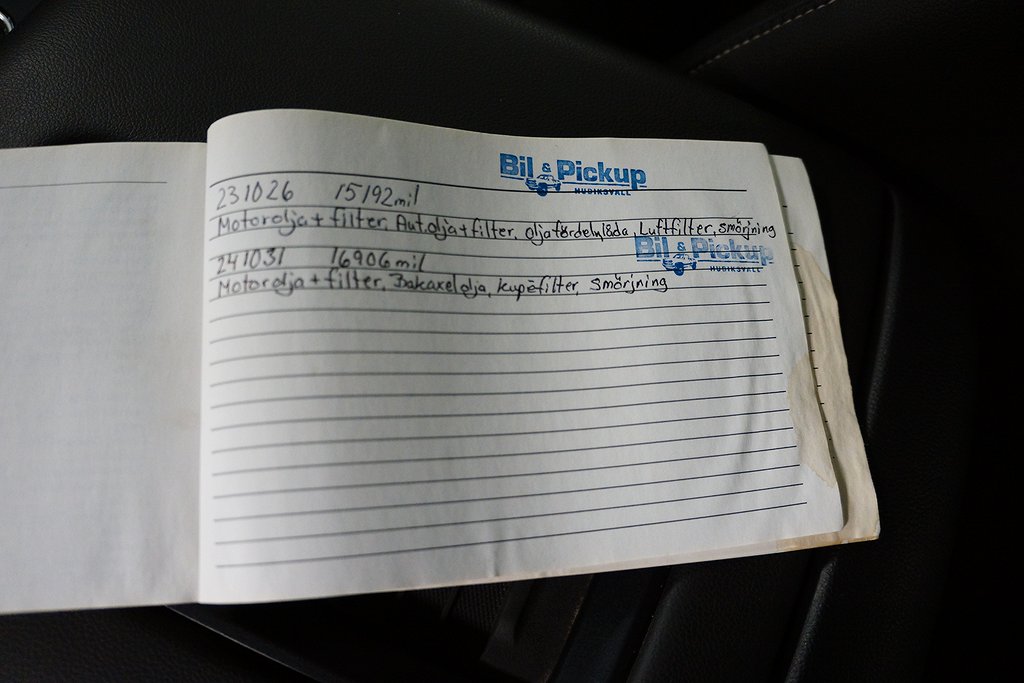 Bil & Pickup
HUDIKSVALL
231026 15192mil
Motorolja + filter, Aut.olja + filter, olja fördelnlåda, Luftfilter, smörjning
Bil & Pickup
HUDIKSVALL
241031 16906mil
Motorolja + filter, Bakaxelolja, kupéfilter, smörjning